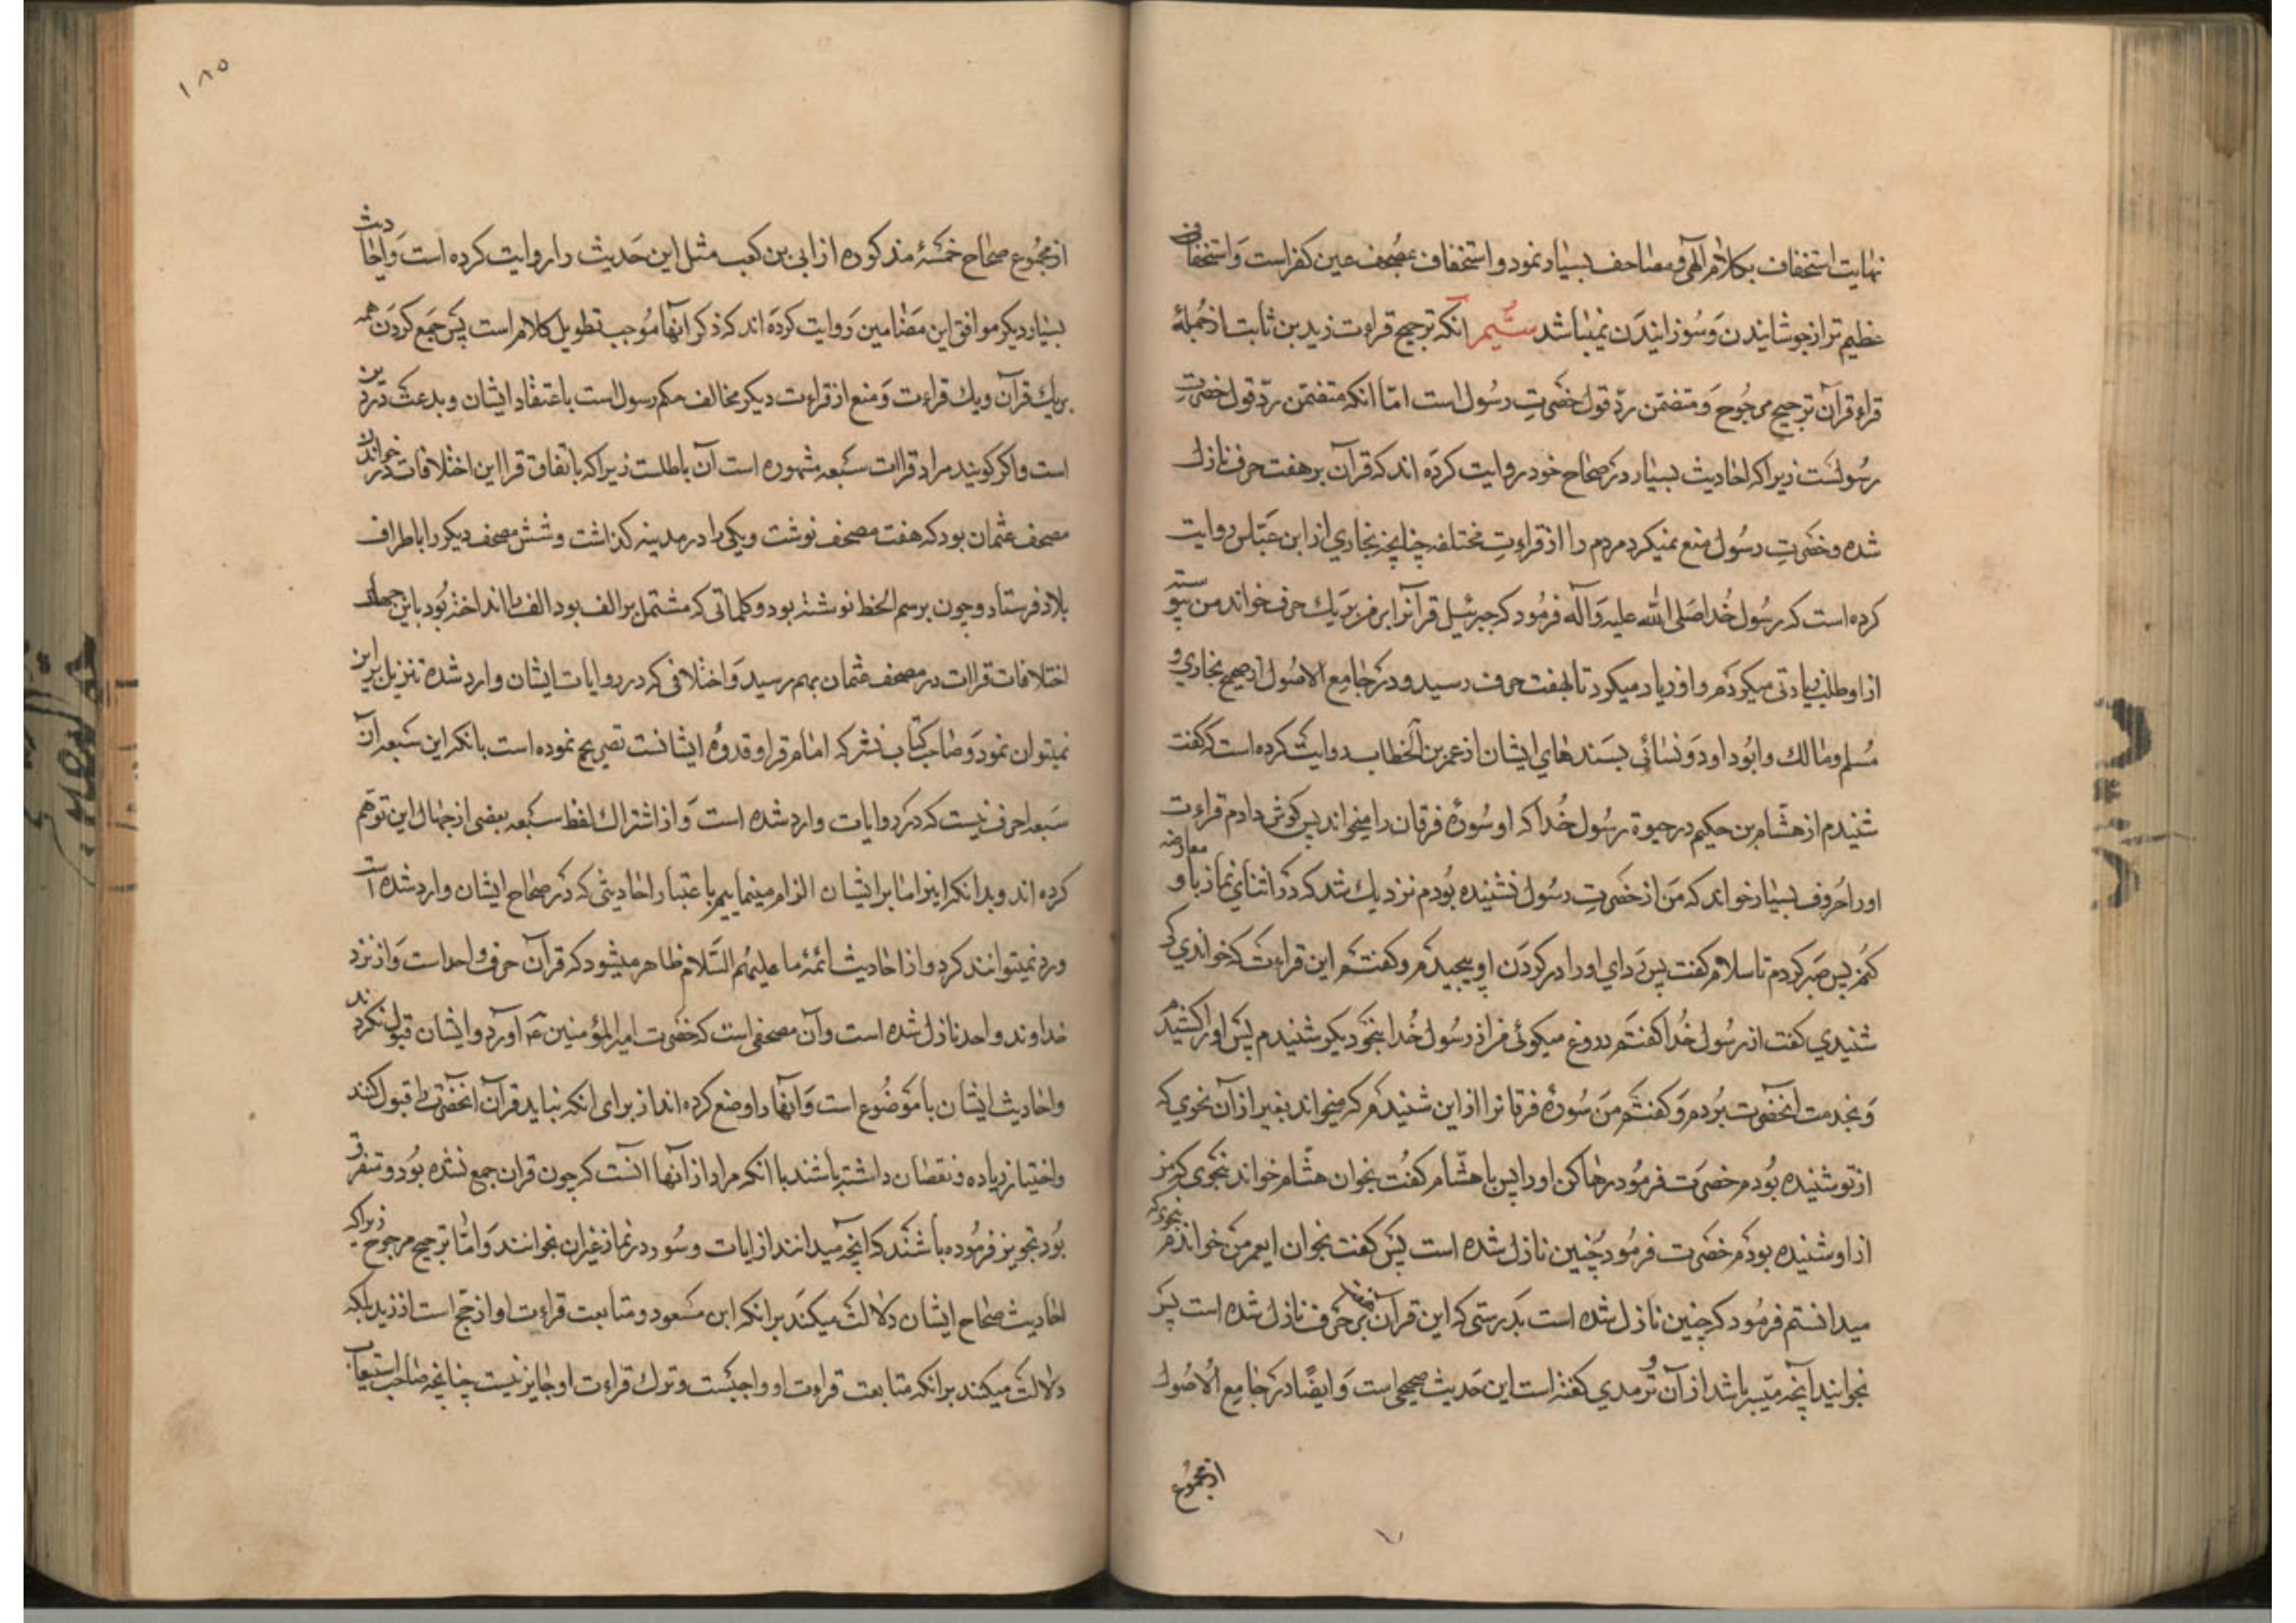 نهایت استخفاف بکلام الهی و مصاحف بسیار نمود و استخفاف بمصحف عین کفر است و استخفاف
عظیم تر از جوشانیدن و سوزانیدن نمیباشد سیم انکه ترجیح قراءت زید بن ثابت از جملهٔ
قراء قرآن ترجیح مرجوح و متضمن ردّ قول حضرتِ رسول است امّا انکه متضمن ردّ قول حضرتِ
رسولست زیرا که احادیث بسیار در صحاح خود روایت کرده اند که قرآن بر هفت حرف نازل
شده و حضرتِ رسول منع نمیکرد مردم را از قراءتِ مختلفه چنانچه بخاری از ابن عباس روایت
کرده است که رسول خدا صلی الله علیه و آله فرمود که جبرئیل قرآنرا بر من بر یک حرف خواند من پیوسته
از او طلب زیادتی میکردم و او زیاد میکرد تا بهفت حرف رسید و در جامع الاصول از صحیح بخاری و
مسلم و مالک و ابو داود و نسائی بسندهای ایشان از عمر بن الخطاب روایت کرده است که گفت
شنیدم از هشام بن حکیم در حیوة رسول خدا که او سورهٔ فرقان را میخواند پس کوش دادم قراءت
او را حروف بسیار خواند که من از حضرتِ رسول نشنیده بودم نزدیک شد که در اثنای نماز با او معارضه
کنم پس صبر کردم تا سلام کفت پس ردای او را در کردن او پیچیدم و کفتم این قراءت که خواندی از که
شنیدی کفت از رسول خدا کفتم دروغ میکوئی من از رسول خدا بنحو دیکر شنیدم پس او را کشیدم
و بخدمت آنحضرت بردم و کفتم من سورهٔ فرقانرا از این شنیدم که میخواند بغیر از آن نحوی که
از تو شنیده بودم حضرت فرمود رها کن او را پس با هشام کفت بخوان هشام خواند بنحوی که من
از او شنیده بودم حضرت فرمود چنین نازل شده است پس کفت بخوان ای عمر من خواندم بنحوی که
میدانستم فرمود که چنین نازل شده است بدرستی که این قرآن بر هفت حرف نازل شده است پس
بخوانید آنچه میسر باشد از آن و ترمدی کفته است این حدیث صحیحی است و ایضًا در جامع الاصول
از مجموع
۱۸۵
از مجموع صحاح خمسهٔ مذکوره از ابی بن کعب مثل این حدیث را روایت کرده است و احادیث
بسیار دیکر موافق این مضامین روایت کرده اند که ذکر آنها موجب تطویل کلام است پس جمع کردن همه
بر یک قرآن و یک قراءت و منع از قراءت دیکر مخالف حکم رسول است باعتقاد ایشان و بدعت در دین
است و اکر کویند مراد قراات سبعه مشهوره است آن باطلست زیرا که باتفاق قرا این اختلافات در خواندن
مصحف عثمان بود که هفت مصحف نوشت و یکی را در مدینه کذاشت و شش مصحف دیکر را باطراف
بلاد فرستاد و چون برسم الخط نوشته بود و کلماتی که مشتمل بر الف بود الف را انداخته بود باین جهات
اختلافات قراات در مصحف عثمان بهم رسید و اختلافی که در روایات ایشان وارد شده تنزیل بر این
نمیتوان نمود و صاحب کتاب نشر که امام قرا و قدوهٔ ایشانست تصریح نموده است بانکه این سبعه آن
سبعه احرف نیست که در روایات وارد شده است و از اشتراک لفظ سبعه بعضی از جهال این توهم
کرده اند و بدانکه اینرا ما بر ایشان الزام مینماییم باعتبار احادیثی که در صحاح ایشان وارد شده است
ورد نمیتوانند کرد و از احادیث ائمهٔ ما علیهم السلام ظاهر میشود که قرآن حرف واحد است و از نزد
خداوند واحد نازل شده است و آن مصحفی است که حضرت امیر المؤمنین ع آورد و ایشان قبول نکردند
و احادیث ایشان یا موضوع است و آنها را وضع کرده اند از برای انکه نباید قرآن آنحضرت را قبول کنند
و اختیار زیاده و نقصان داشته باشند یا انکه مراد از آنها آنست که چون قران جمع نشده بود و متفرق
بود تجویز فرموده باشند که آنچه میدانند از ایات و سور در نماز و غیران بخوانند و امّا ترجیح مرجوح زیرا که
احادیث صحاح ایشان دلالت میکند بر انکه ابن مسعود و متابعت قراءت او ارجح است از زید بلکه
دلالت میکند بر انکه متابعت قراءت او واجبست و ترک قراءت او جایز نیست چنانچه صاحب استیعاب